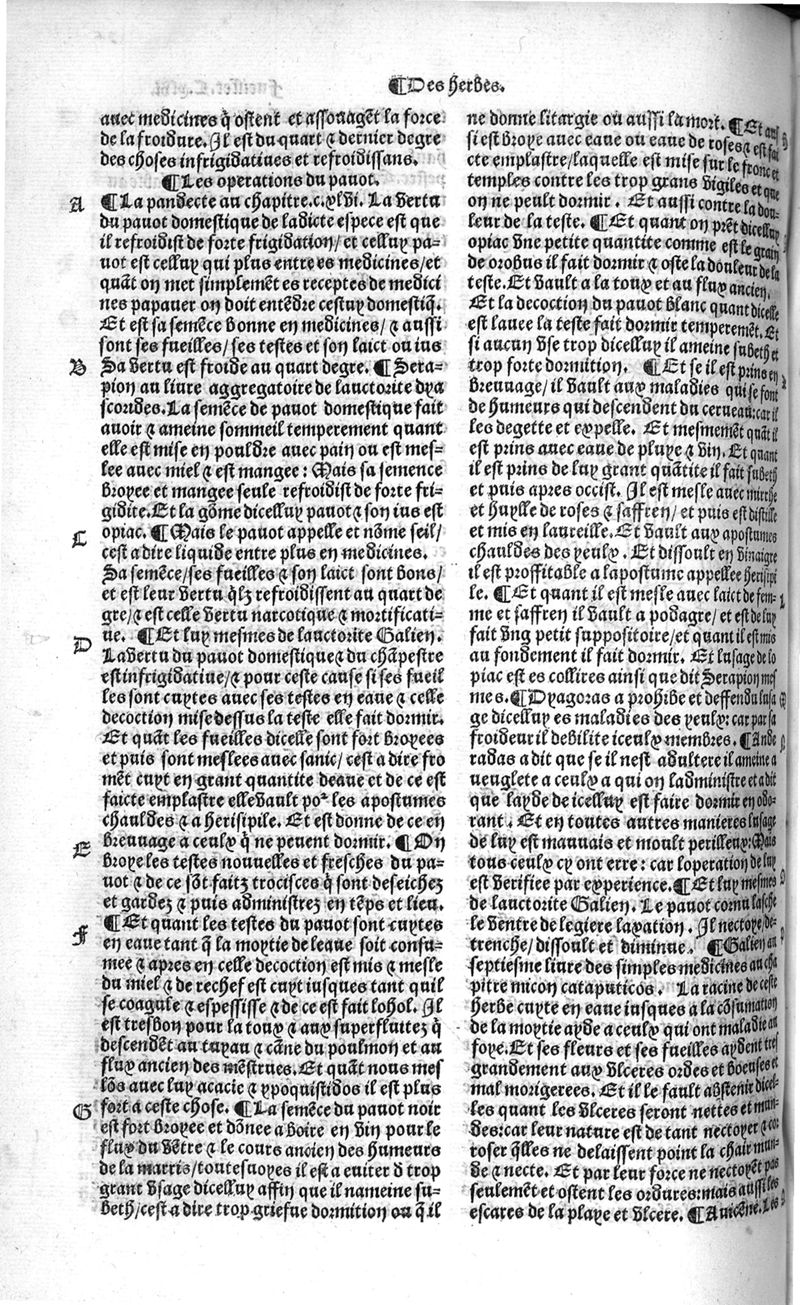 ¶Des herbes.
auec medicines q̃ ostent et assouagẽt la force
de la froidure. Il est du quart ⁊ dernier degre
des choses infrigidatiues et refroidissans.
¶Les operations du pauot.
A ¶La pandecte au chapitre.c.xlvi. La vertu
du pauot domestique de ladicte espece est que
il refroidist de forte frigidation/ et celluy pa-
uot est celluy qui plus entre es medicines/et
quãt on met simplemẽt es receptes de medici
nes papauer on doit entẽdre cestuy domestiq̃.
Et est sa semẽce bonne en medicines/ ⁊ aussi
sont ses fueilles/ ses testes et son laict ou ius
B Sa vertu est froide au quart degre. ¶Sera-
pion au liure aggregatoire de lauctorite dya
scordes. La semẽce de pauot domestique fait
auoir ⁊ ameine sommeil temperement quant
elle est mise en pouldre auec pain ou est mes-
lee auec miel ⁊ est mangee: Mais sa semence
broyee et mangee seule refroidist de forte fri-
gidite. Et la gõme dicelluy pauot ⁊ son ius est
C opiac. ¶Mais le pauot appelle et nõme seil/
cest a dire liquide entre plus en medicines.
Sa semẽce/ses fueilles ⁊ son laict sont bons/
et est leur vertu q̃lz refroidissent au quart de
gre/⁊ est celle vertu narcotique ⁊ mortificati-
D ue. ¶Et luy mesmes de lauctorite Galien.
La vertu du pauot domestique ⁊ du chãpestre
est infrigidatiue/⁊ pour ceste cause si ses fueil
les sont cuytes auec ses testes en eaue ⁊ celle
decoction mise dessus la teste elle fait dormir.
Et quãt les fueilles dicelle sont fort broyees
et puis sont meslees auec sanic/ cest a dire fro
mẽt cuyt en grant quantite deaue et de ce est
faicte emplastre elle vault poᵘ les apostumes
chauldes ⁊ a herisipile. Et est donne de ce en
E breuuage a ceulx q̃ ne peuent dormir. ¶On
broye les testes nouuelles et fresches du pa-
uot ⁊ de ce sõt faitz trocisces q̃ sont deseichez
et gardez ⁊ puis administrez en tẽps et lieu.
F ¶Et quant les testes du pauot sont cuytes
en eaue tant q̃ la moytie de leaue soit consu-
mee ⁊ apres en celle decoction est mis ⁊ mesle
du miel ⁊ de rechef est cuyt iusques tant quil
se coagule ⁊ espessisse ⁊ de ce est fait lohol. Il
est tresbon pour la toux ⁊ aux superfluitez q̃
descendẽt au tuyau ⁊ cãne du poulmon et au
flux ancien des mẽstrues. Et quãt nous mes
lõs auec luy acacie ⁊ ypoquistidos il est plus
G fort a ceste chose. ¶La semẽce du pauot noir
est fort broyee et dõnee a boire en vin pour le
flux du vẽtre ⁊ le cours ancien des humeurs
de la marris/toutesuoyes il est a euiter d̕ trop
grant vsage dicelluy affin que il nameine su-
beth/cest a dire trop griefue dormition ou q̃ il
ne donne litargie ou aussi la mort. ¶Et aus
si est broye auec eaue ou eaue de roses ⁊ est fai
cte emplastre/laquelle est mise sur le front et
temples contre les trop grans vigiles et que
on ne peult dormir. Et aussi contre la dou-
leur de la teste. ¶Et quant on prẽt dicelluy
opiac vne petite quantite comme est le grain
de orobus il fait dormir ⁊ oste la douleur de la
teste. Et vault a la toux et au flux ancien.
Et la decoction du pauot blanc quant dicelle
est lauee la teste fait dormir temperemẽt. Et
si aucun vse trop dicelluy il ameine subeth et
trop forte dormition. ¶Et se il est prins en
breuuage/ il vault aux maladies qui se font
de humeurs qui descendent du cerueau: car il
les degette et expelle. Et mesmemẽt quãt il
est prins auec eaue de pluye ⁊ vin. Et quant
il est prins de luy grant quãtite il fait subeth
et puis apres occist. Il est mesle auec mirrhe
et huylle de roses ⁊ saffren/ et puis est distille
et mis en laureille. Et vault aux apostumes
chauldes des yeulx. Et dissoult en vinaigre
il est proffitable a lapostume appellee herisipi
le. ¶Et quant il est mesle auec laict de fem-
me et saffren il vault a podagre/ et est de luy
fait vng petit suppositoire/et quant il est mis
au fondement il fait dormir. Et lusage de lo
piac est es collires ainsi que dit Serapion mes
mes. ¶Dyagoras a prohibe et deffendu lusa
ge dicelluy es maladies des yeulx: car par sa
froideur il debilite iceulx membres. ¶Ande
radas a dit que se il nest adultere il ameine a
ueuglete a ceulx a qui on ladministre et a dit
que layde de icelluy est faire dormir en odo-
rant. Et en toutes autres manieres lusage
de luy est mauuais et moult perilleux: Mais
tous ceulx cy ont erre: car loperation de luy
est verifiee par experience. ¶Et luy mesmes
de lauctorite Galien. Le pauot cornu lasche
le ventre de legiere laxation. Il nectoye/de-
trenche/dissoult et diminue. ¶Galien au
septiesme liure des simples medicines au cha
pitre micon cataputicos. La racine de ceste
herbe cuyte en eaue iusques a la cõsumation
de la moytie ayde a ceulx qui ont maladie au
foye. Et ses fleurs et ses fueilles aydent tres
grandement aux vlceres ordes et boeuses et
mal morigerees. Et il le fault abstenir dicel-
les quant les vlceres seront nettes et mun-
des: car leur nature est de tant nectoyer ⁊ cor
roser q̃lles ne delaissent point la chair mun-
de ⁊ necte. Et par leur force ne nectoyẽt pas
seulemẽt et ostent les ordures: mais aussi les
escares de la playe et vlcere. ¶Auicẽne. Les